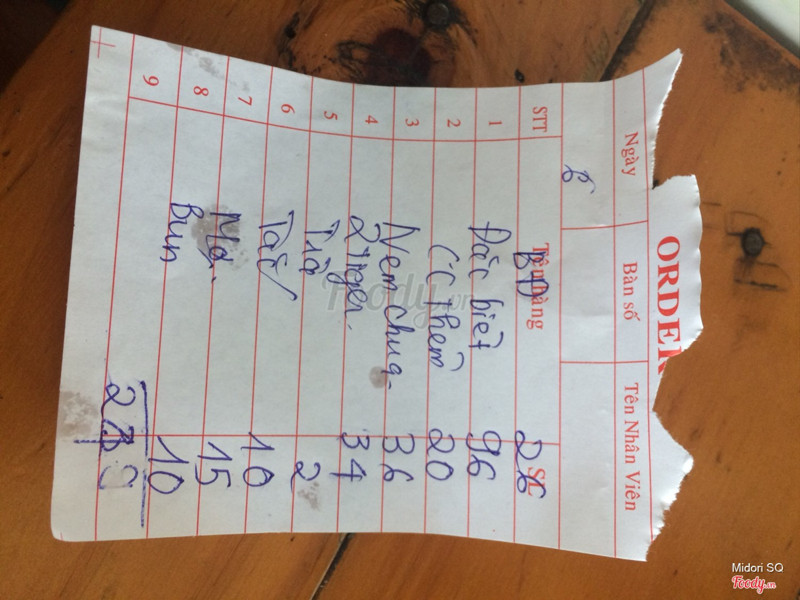 ORDER
Ngày Bàn số Tên Nhân Viên
6
STT Tên hàng SL
BD 26
1 Đặc biệt 96
2 CC thêm 20
3 Nem chua 36
4 34
5 Trà 2
6 Tắc 10
7 Mơ 15
8 Bún 10
9
Foody.vn
Midori SQ
Foody.vn